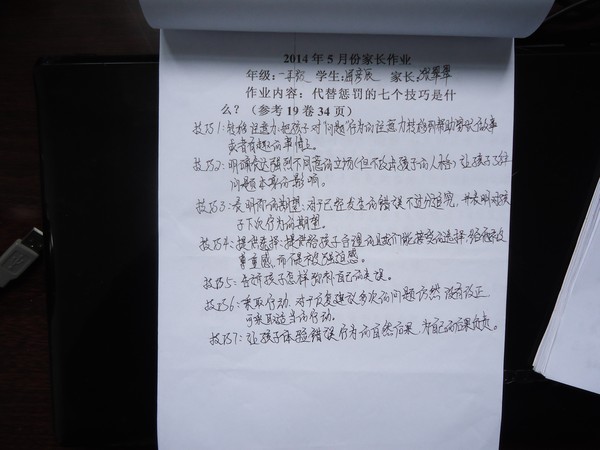 2014年5月份家长作业
年级：一年级 学生： 家长：
作业内容：代替惩罚的七个技巧是什
么？（参考19卷34页）
技巧1：转移注意力，把孩子对"问题"行为的注意力转移到帮助家长做事
或者有趣的事情上。
技巧2：明确表达强烈不同意的立场（但不攻击孩子的人格）让孩子了解
问题本身的影响。
技巧3：表明你的期望：对于已经发生的错误不过分追究，并表明对孩
子下次行为的期望。
技巧4：提供选择：提供给孩子合理的且我们能接受的选择，给应有的
尊重感，而不是被强迫感。
技巧5：告诉孩子怎样弥补自己的失误。
技巧6：采取行动，对于反复建议多次的问题仍然没有改正
可采取适当的行动。
技巧7：让孩子体验错误行为的自然后果，为自己的后果负责。